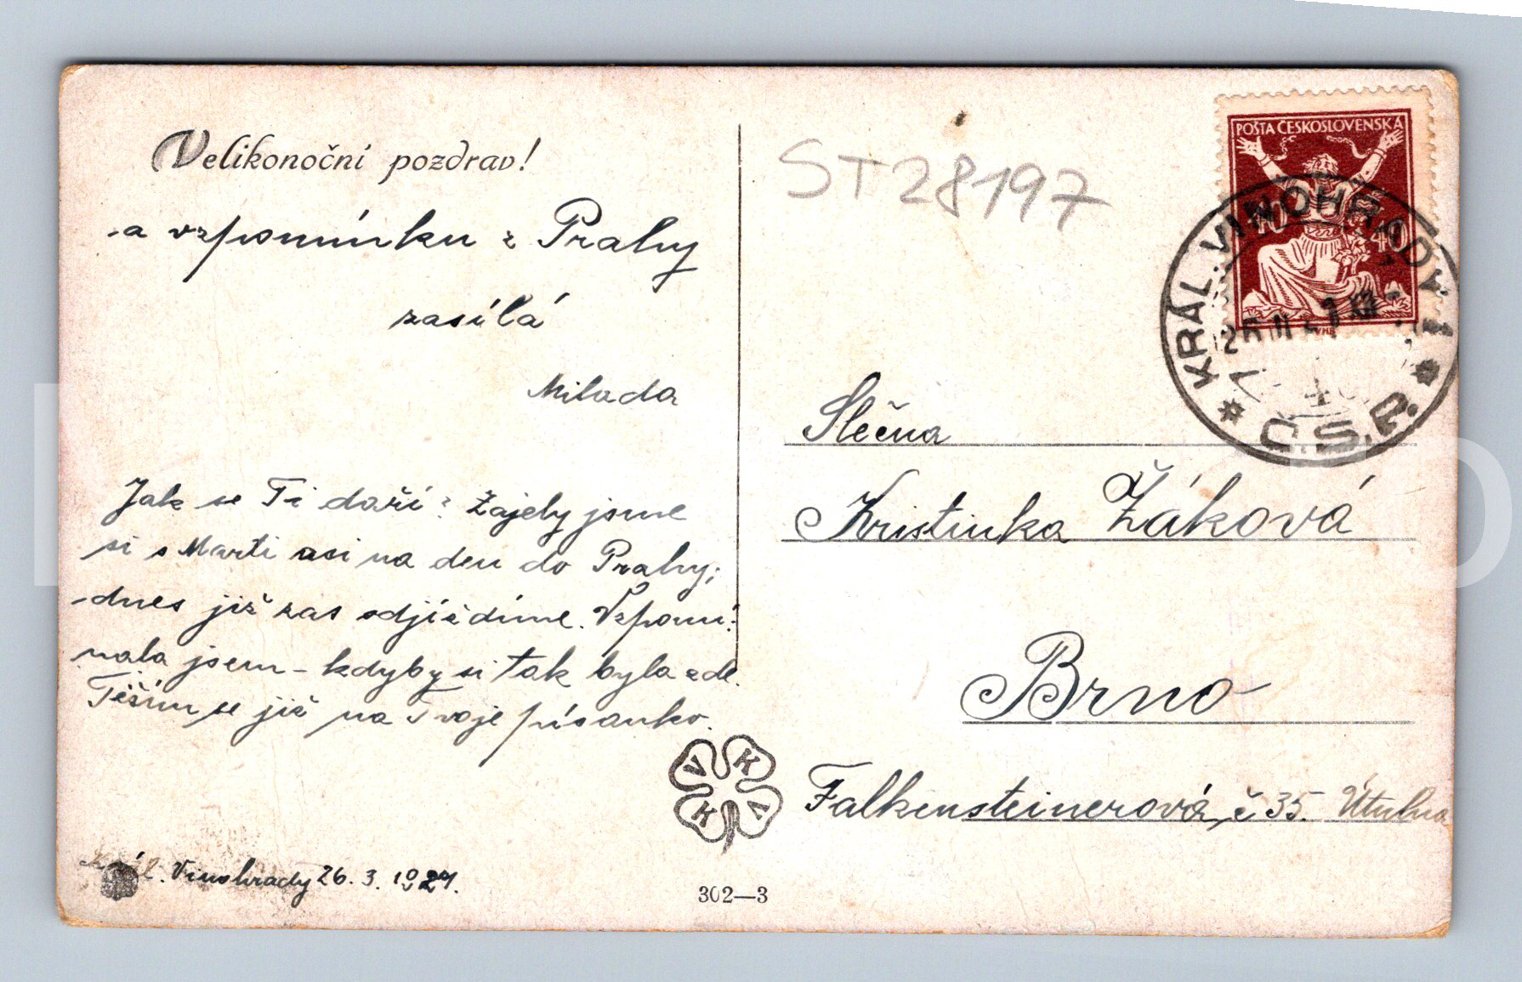 Velikonoční pozdrav!
-a vzpomínku z Prahy
zasílá
Milada
Jak se Ti daří? Zajely jsme
si s Marti asi na den do Prahy;
-dnes již zas odjíždíme. Vzpomí-
nala jsem – kdyby si tak byla zde.
Těším se již na Tvoje písanko.
Král. Vinohrady 26. 3. 1921.
VKVK
302—3
ST28197
POŠTA ČESKOSLOVENSKÁ
40 40
KRÁL. VINOHRADY 1
26 III 21
Č.S.P.
Slečna
Kristinka Žáková
Brno
Falkensteinerová, č 35. Útulna